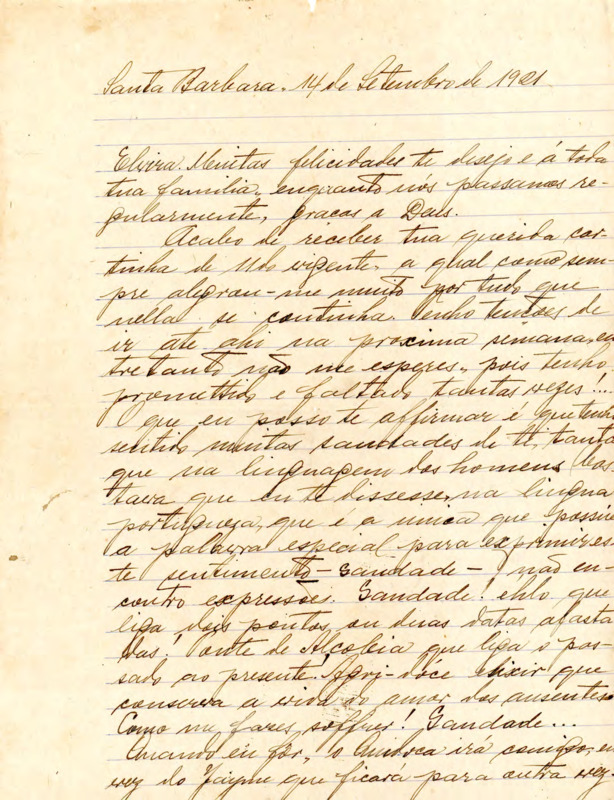 Santa Barbara, 14 de Setembro de 1921
Elvira. Muitas felicidades te desejo e á toda
tua familia, enquanto nós passamos re-
gularmente, graças a Deus.
Acabo de receber tua querida car-
tinha de 11 do vigente, a qual como sem-
pre alegrou-me muito por tudo que
nella se continha. Tenho tenções de
ir até ahi na proxima semana, en
tretanto não me esperes, pois tenho
promettido e faltado tantas vezes!...
que eu posso te affirmar é que tenho
sentido muitas saudades de ti, tanta
que na linguagem dos homens bas
tava que eu te dissesse, na lingua
portugueza, que é a unica que possue
a palavra especial para exprimir es-
te sentimento - Saudade - não en-
contro expressões. Saudade! ehlo que
liga dois pontos, ou duas datas afasta
das! Ponte de que liga o pas-
sado ao presente! Agri-dôce elixir que
conserva a vida do amor dos ausentes.
Como me fazes soffrer! Saudade...
Quando eu fôr, o irá comigo, em
vez do Jayme que ficará para outra vez.